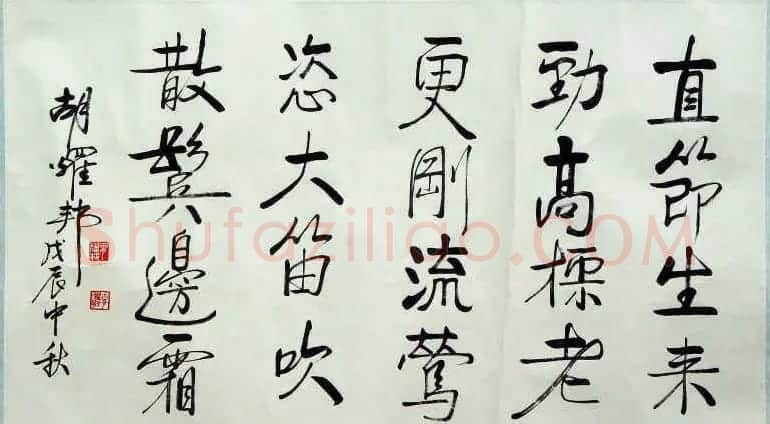 直節生来
勁高標老
更剛流鶯
恣大笛吹
散鬢邊霜
胡耀邦戊辰中秋
Shufaziliao.COM